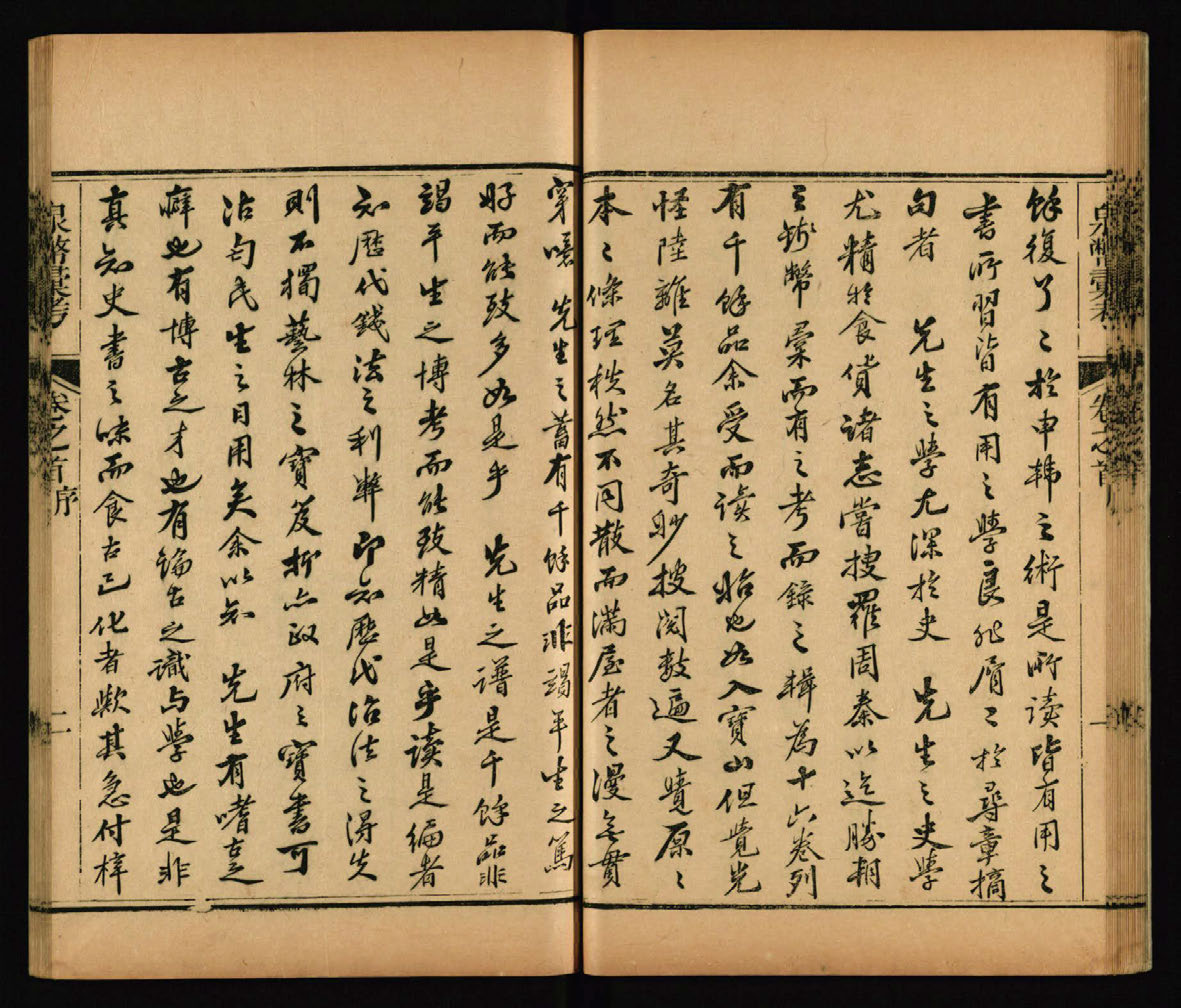 泉幣彙考 卷之首 一
餘復了〻於申韩之術是所读皆有用之
書所習皆有用之學良非屑〻於尋章摘
句者 先生之學尤深於史 先生之史學
尤精於食貨諸志嘗搜羅周秦以迄勝朝
之錢幣彙而有之考而錄之輯為十六卷列
有千餘品余受而读之始也如入寶山但覺光
怪陸離莫名其奇眇披阅数遍又覺原〻
本〻條理秩然不同散而滿屋者之漫無貫
穿噫 先生之蓄有千餘品非竭平生之篤
好而能致多如是乎 先生之谱是千餘品非
竭平生之博考而能致精如是乎读是编者
知歷代錢法之利弊即知歷代治法之得失
則不獨藝林之寶笈抑亦政府之寶書可
沾匄民生之日用矣余以知 先生有嗜古之
癖也有博古之才也有鑰古之識与學也是非
真知史書之味而食古已化者歟其急付梓
泉幣彙考 卷之首 序 二